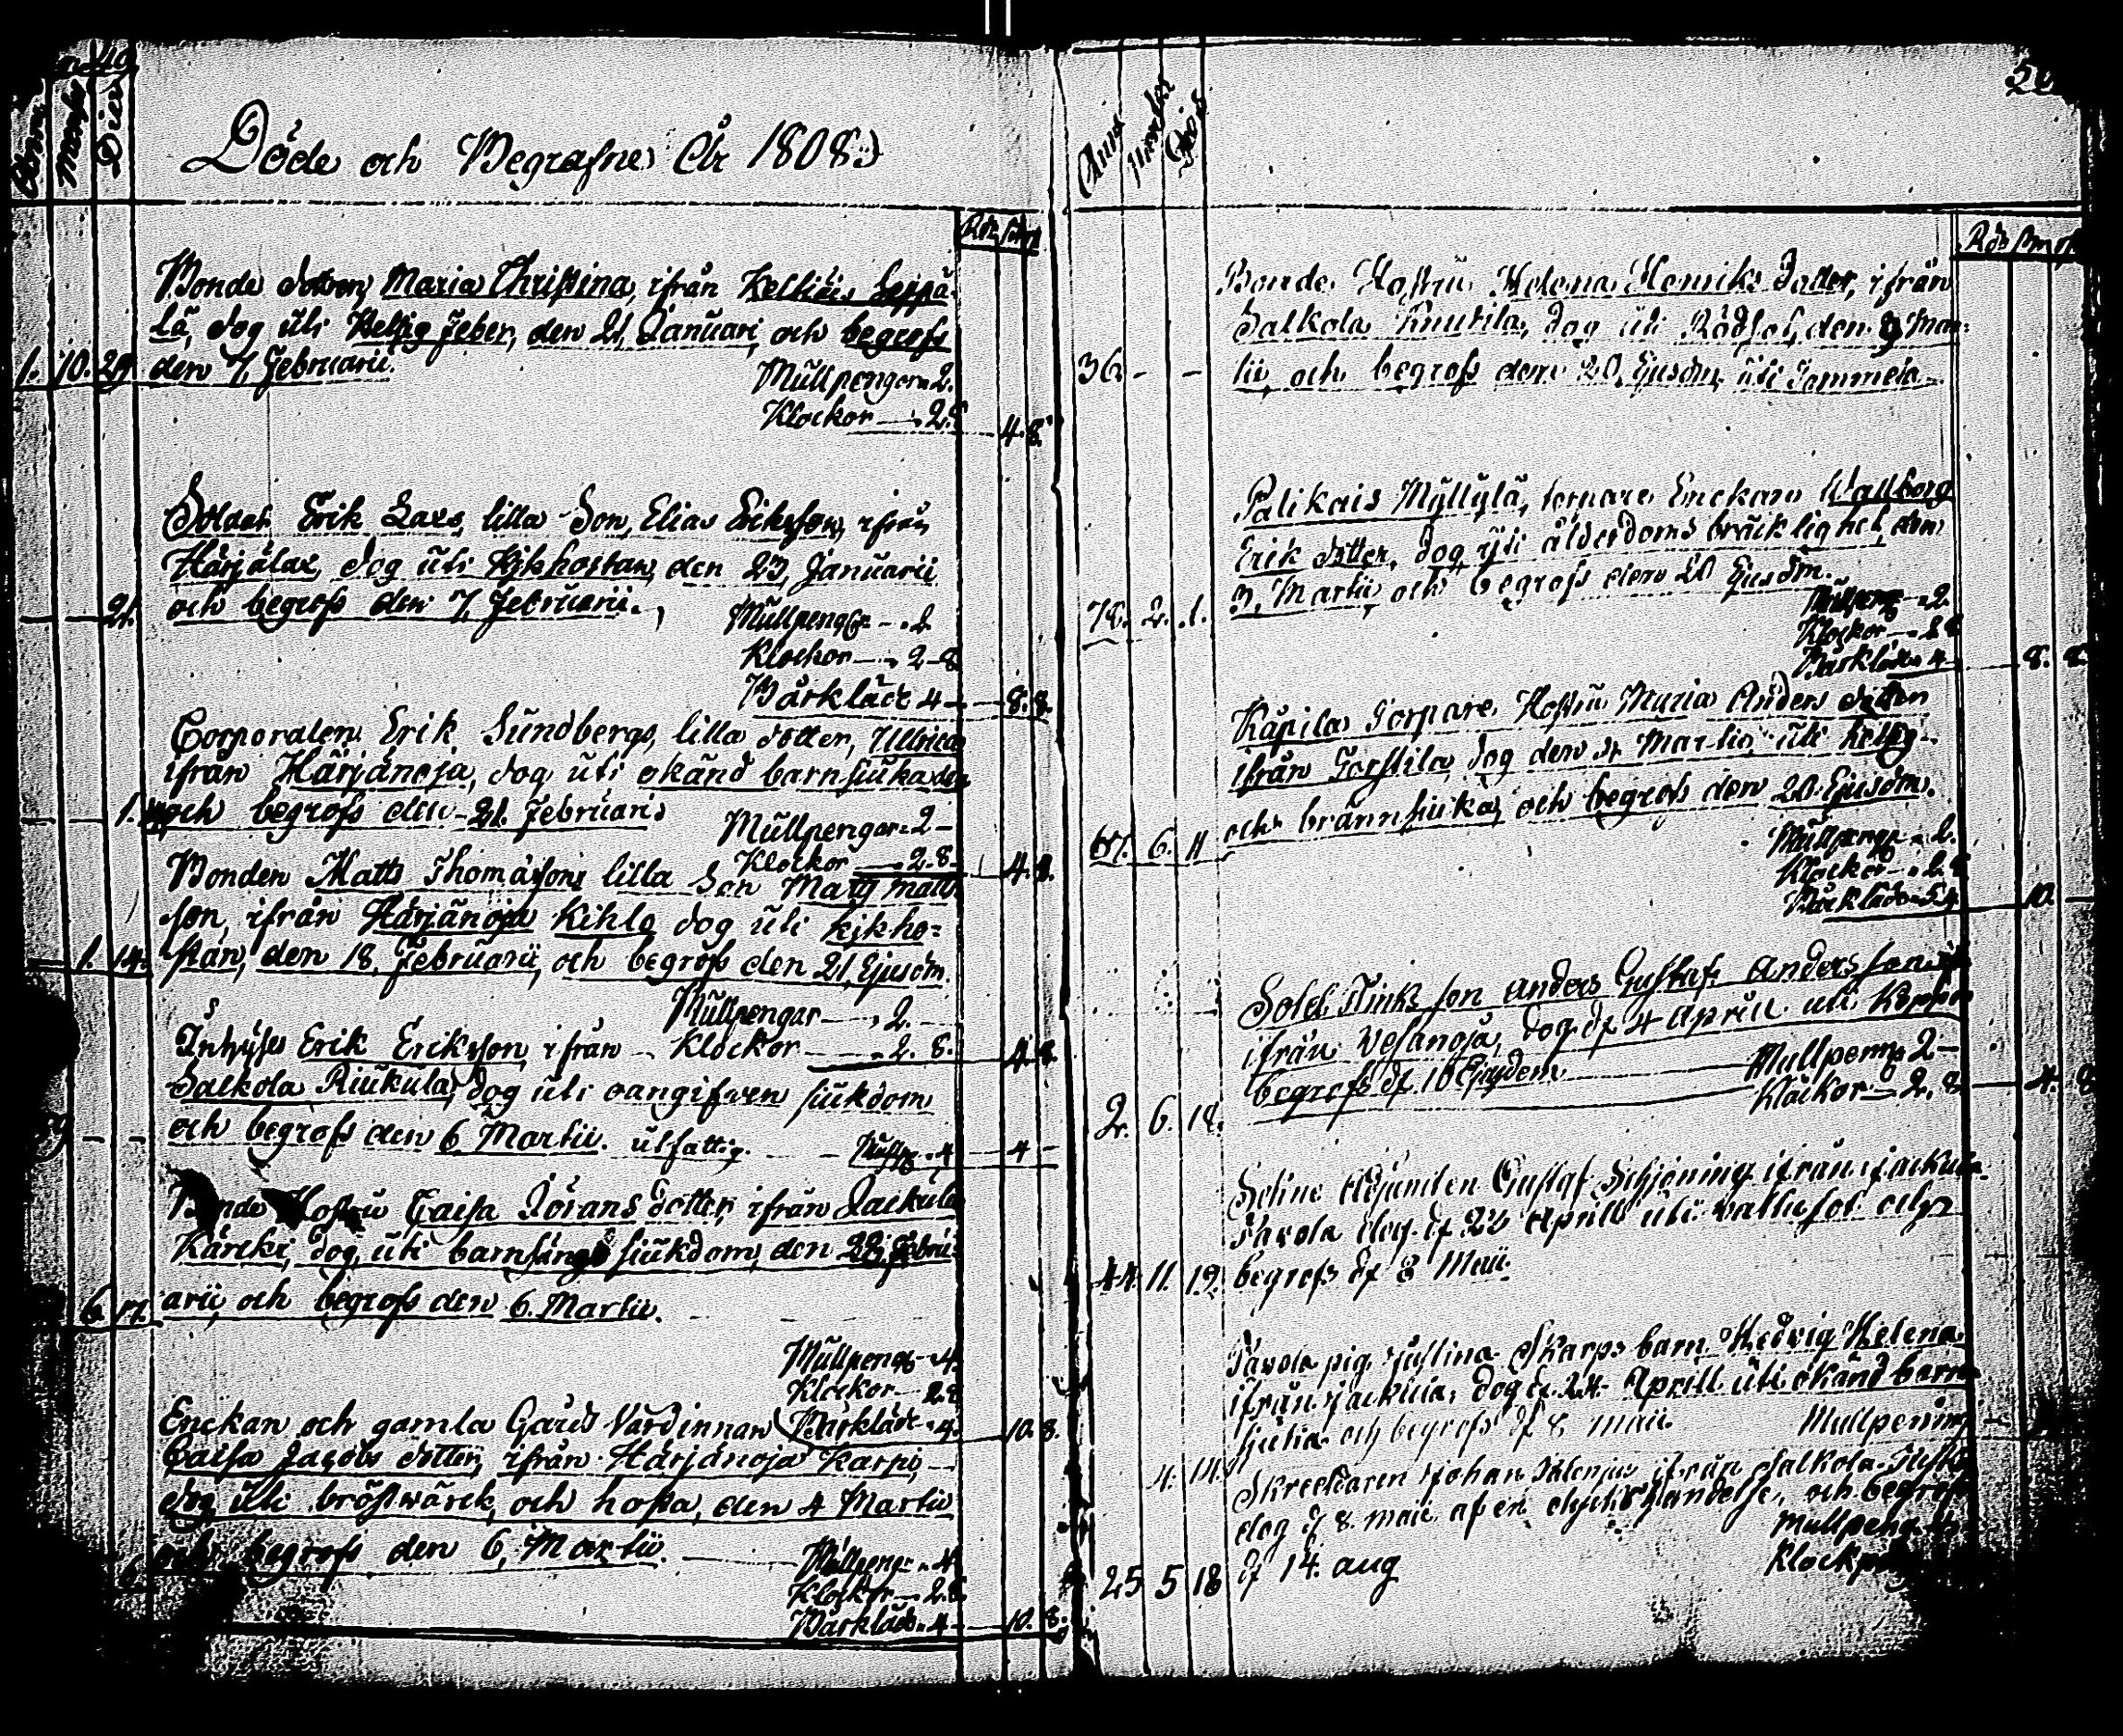 49
Annus Mensis Dies
Döde och Begrafne År 1808
Rdr
Bonde dotron Maria Christina, ifrån Keltiäis Seppä-
lä, dog uti Hetsig feber, den 21, Januari, och begrofs
1. 10. 29 den 7, Februarii.
Mullpengar 2.
Klockor — 2.8
4. 8.
Soldat Erik Laxs, lilla Son, Elias Eriksson, ifrån
Härjälax, dog uti Kjkhostan, den 23, Januarii
21. och begrofs den 7, Februarii.
Mullpengr — 2
Klockor — 2-8
Bårkläde 4 — 8. 8.
Corporalen Erik Sundbergs, lilla dotter, Ullrica
ifrån Härjänoja, dog uti okänd barnsiuka den
1. och begrofs den 21. Februari
Mullpengar 2 —
Klockor — 2.8. 4. 8.
Bonden Matts Thomassons lilla Son Matts Matts
son, ifrån Härjänoja Kihle dog uti kjkho-
1. 14. stan, den 18, Februarii, och begrofs den 21, Ejusdm.
Mullpengar — 2.
Inhyses Erik Eriksson, ifrån — Klockor — 2. 8. 4 8.
Salkola Riukula, dog uti oangifven siukdom
och begrofs den 6 Martii. utfattig. — Mullpg 4 — 4 —
Bonde Hostru Caisa Jörans dotter, ifrån Jackula
Kärcki, dog uti barnsängs siukdom, den 22, Febru-
6. arii, och begrofs den 6. Martii.
Mullpengr 4.
Klockor — 2.8
Enckan och gamla Gåud Värdinnan Bårkläde 4. 10. 8.
Caisa Jacobs dotter, ifrån Härjänoja Karpi, —
dog uti bröstwärck, och hosta, den 4 Martii
och begrofs den 6, Martii. — Mullpengr 4
Klockor — 2.8
Bårkläde 4 — 10. 8.
Annus Mensis Dies
Rdr
Bonde Hostru Helena Henriks Dotter, ifrån
Salkola Knutila, dog uti Rödsot, den 9 Mar-
36. — — tii, och begrofs den 20, Ejusdm, uti Sommela
Palikais Myllylä, torpare Enckan Wallborg
Erik dotter, dog uti ålderdoms bräcklighet, den
78. 2. 1. 3, Martii, och begrofs den 20 Ejusdm.
Mullpeng 2.
Klockor — 2 8
Bårkläde 4 — 8. 8.
Käpilä Torpare Hostru Maria Anders dotter
ifrån Torstila, dog den Martii, uti hetsig-
6. 11 och brännsiuka, och begrofs den 20 Ejusdm.
Mullpengr 2.
Klockor — 2.8
Bårkläde 10.
Sold. Tinks son Anders Gustaf Andersson
ifrån Vesanoja, dog d: 4 April uti Koppor
begrofs d: 10 Ejusdem — Mullpenng 2 —
Klockor — 2. 8 — 4. 8
2. 6. 18.
Adjuncten Gustaf Schjöning ifrån Jackula
Pavola dog d: 22 Aprill uti vattusot och
44. 11. 12. begrofs d: 8 Maii.
Pavola pig. Justina Skarps barn Hedvig Helena
ifrån Jackula, dog d: 24 Aprill uti okänd barn
siuka och begrofs d: 8 maii. Mullpening
4. Skreddaren Johan ifrån Salkola
dog d: 8 maii af en olycks händelse, och begrofs
Mullpeng
25 5 18 d: 14. aug